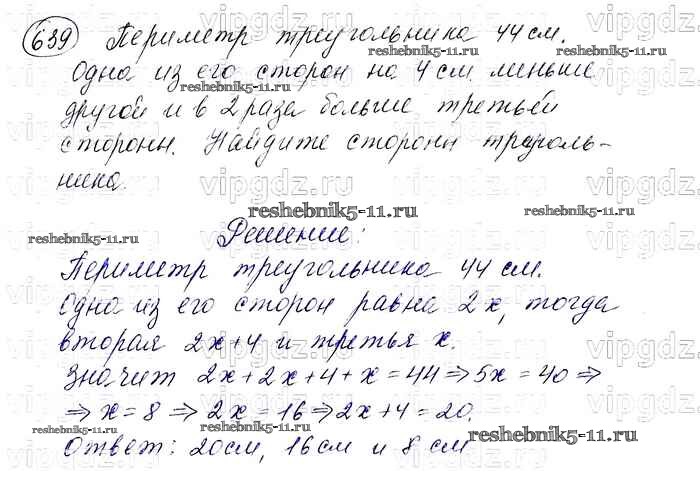 639 Периметр треугольника 44 см.
Одна из его сторон на 4 см меньше
другой и в 2 раза больше третьей
стороны. Найдите стороны треуголь-
ника.
Решение:
Периметр треугольника 44 см.
Одна из его сторон равна 2x, тогда
вторая 2x+4 и третья x.
Значит 2x+2x+4+x=44 ⇒ 5x=40 ⇒
⇒ x=8 ⇒ 2x=16 ⇒ 2x+4=20.
Ответ: 20см, 16см и 8 см
vipgdz.ru
reshebnik5-11.ru